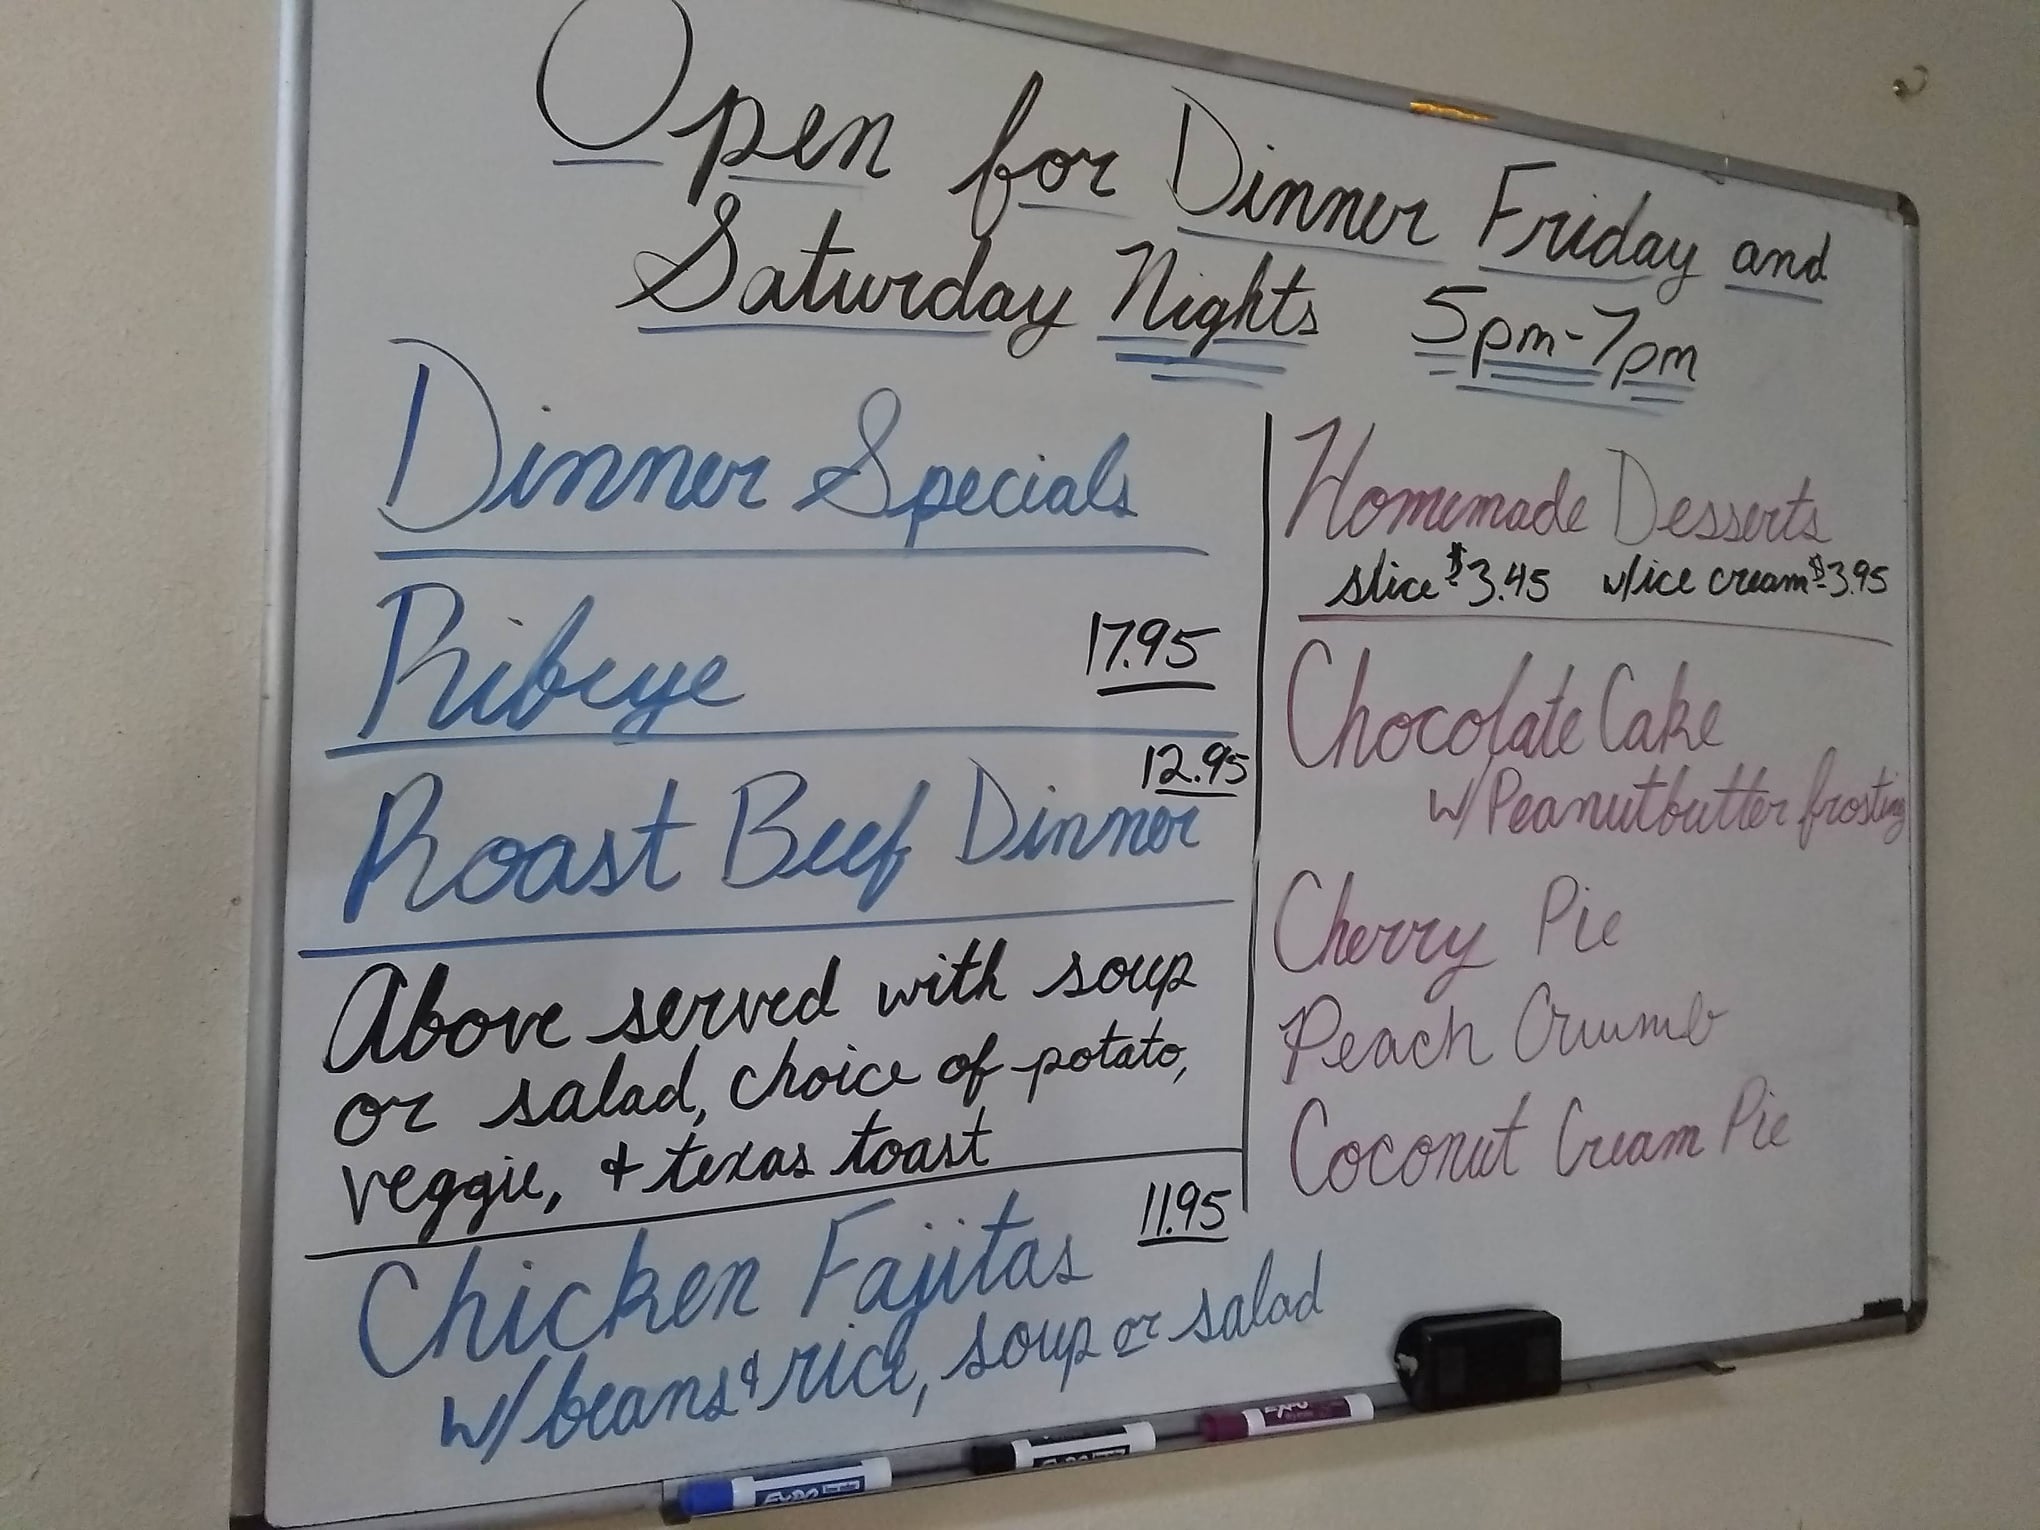 Open for Dinner Friday and
Saturday Nights 5pm-7pm
Dinner Specials
Ribeye 17.95
Roast Beef Dinner 12.95
Above served with soup
or salad, choice of potato,
veggie, & texas toast
Chicken Fajitas 11.95
w/beans & rice, soup or salad
Homemade Desserts
slice $3.45 w/ice cream $3.95
Chocolate Cake
w/Peanutbutter frosting
Cherry Pie
Peach Crumb
Coconut Cream Pie
EXPO
EXPO
EXPO